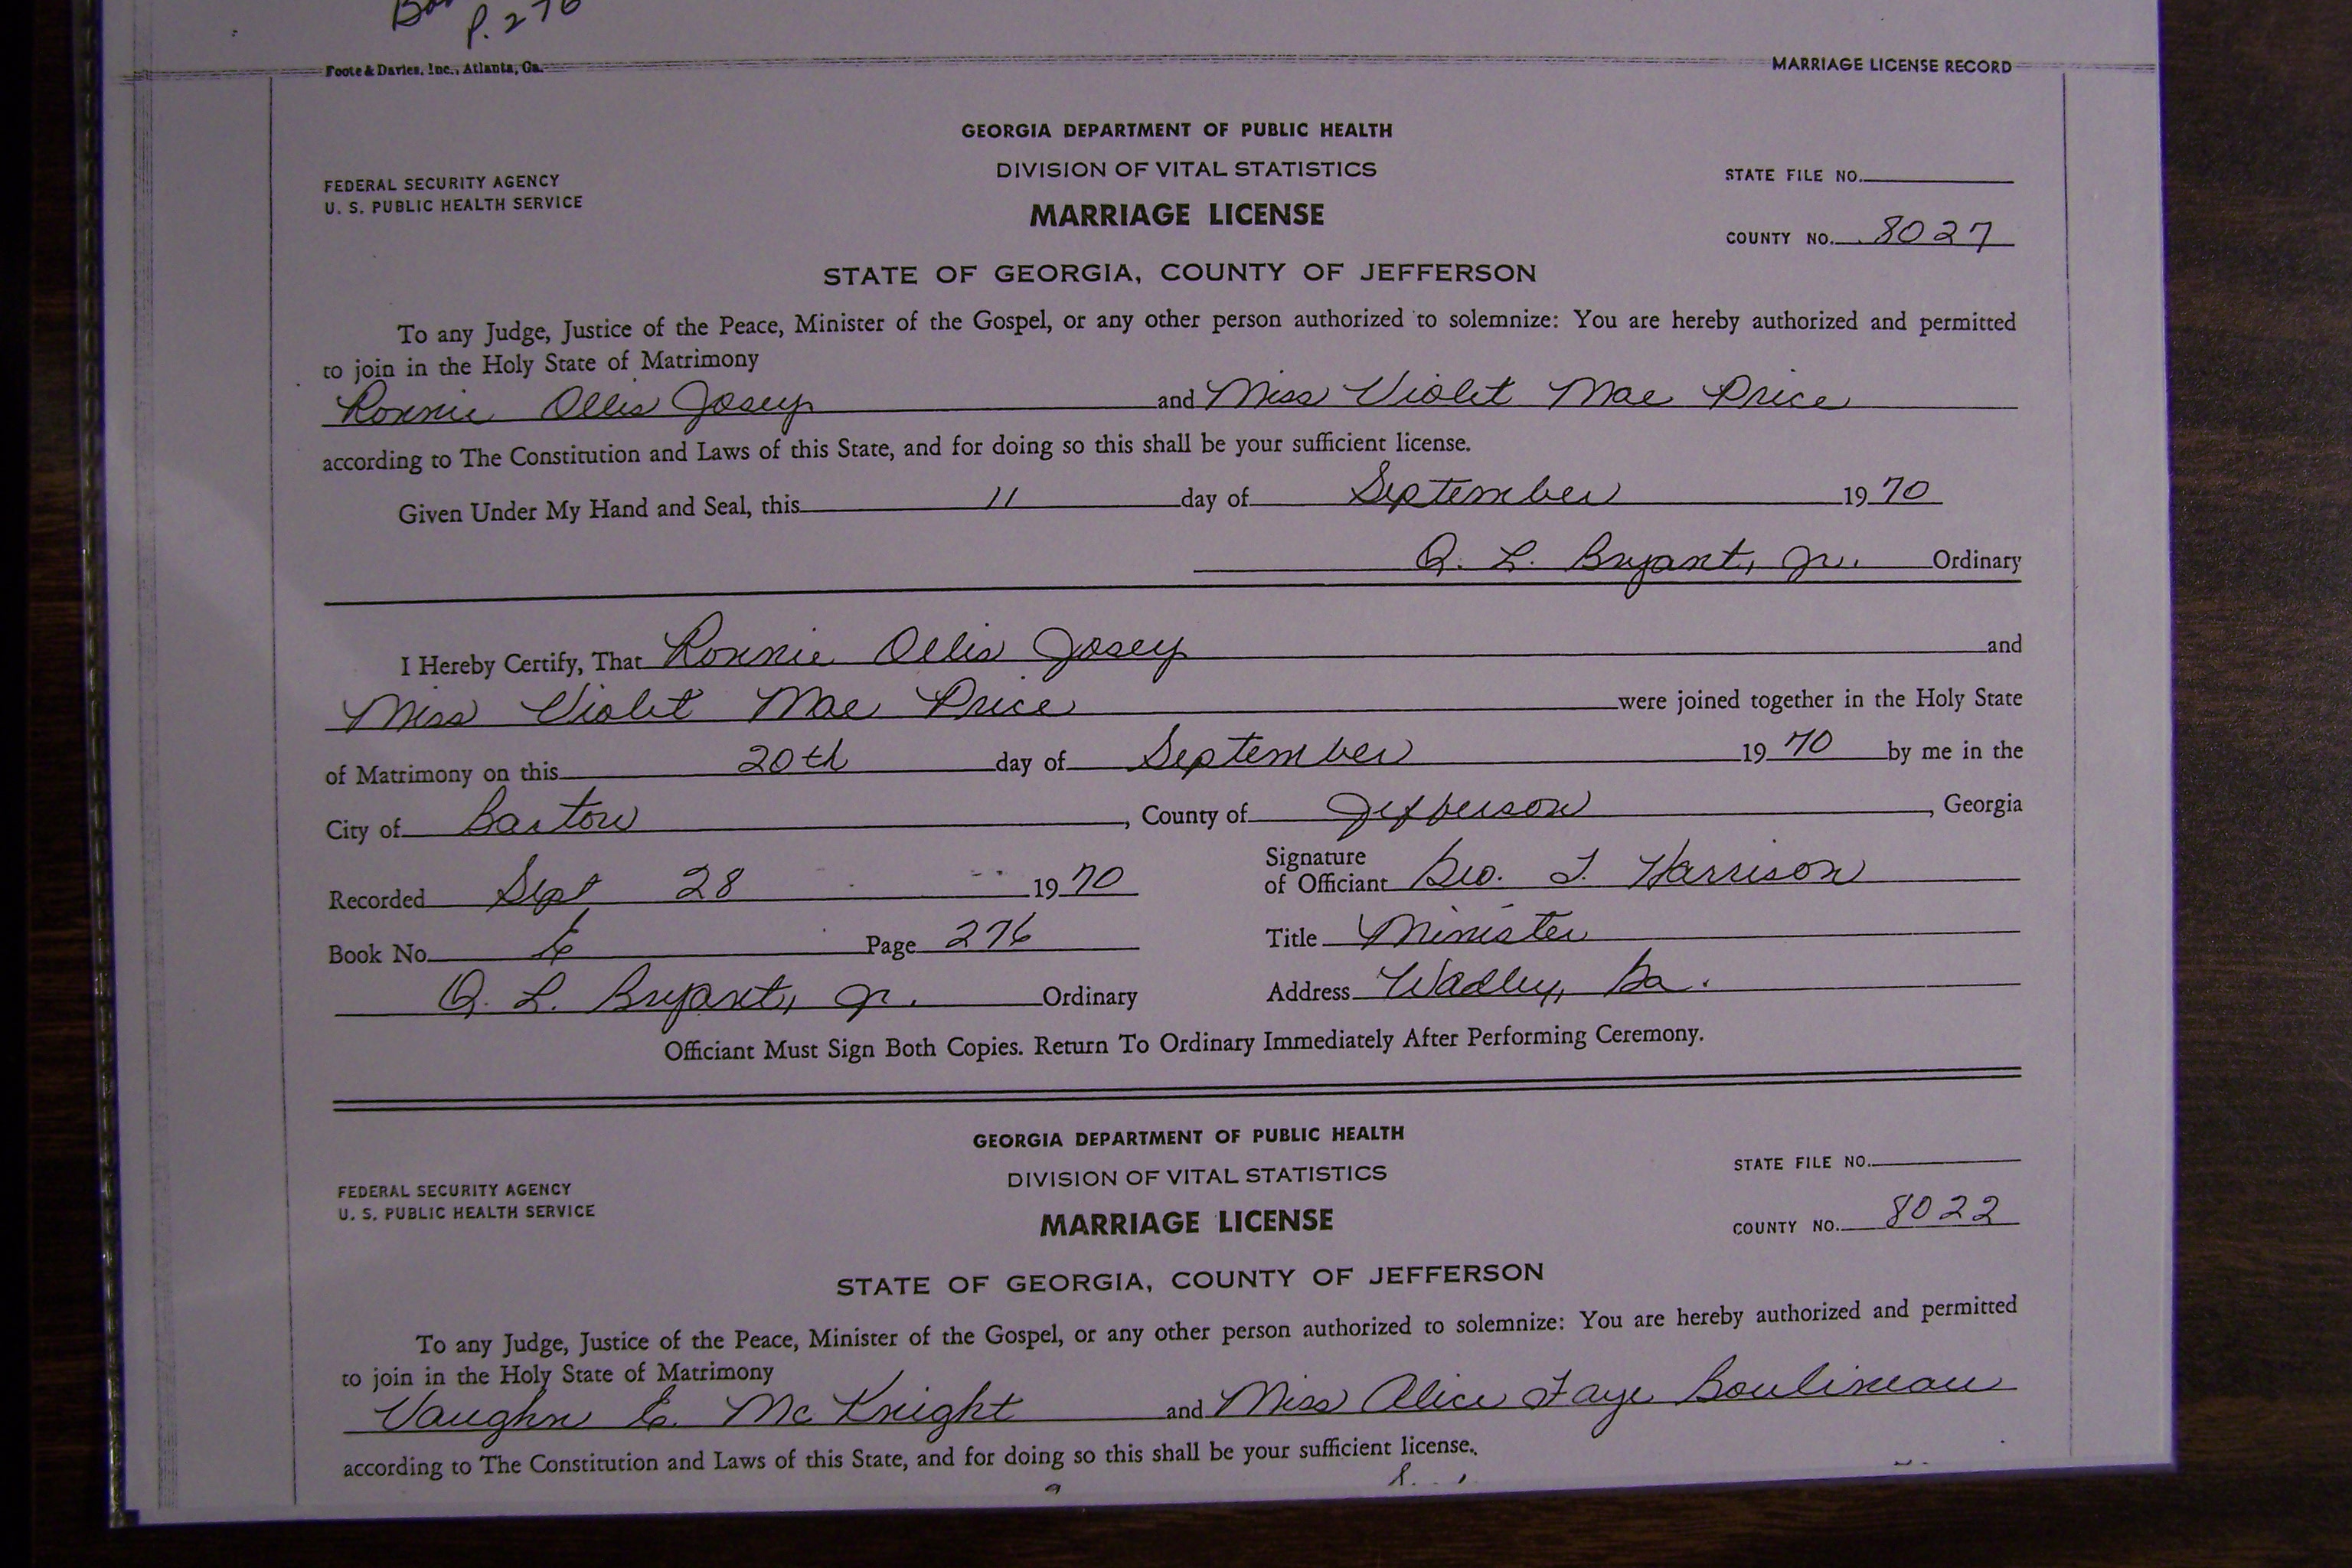 P. 276
Foote & Davies, Inc., Atlanta, Ga. MARRIAGE LICENSE RECORD
GEORGIA DEPARTMENT OF PUBLIC HEALTH
DIVISION OF VITAL STATISTICS
FEDERAL SECURITY AGENCY
U. S. PUBLIC HEALTH SERVICE
MARRIAGE LICENSE
STATE FILE NO.
COUNTY NO. 8027
STATE OF GEORGIA, COUNTY OF JEFFERSON
To any Judge, Justice of the Peace, Minister of the Gospel, or any other person authorized to solemnize: You are hereby authorized and permitted
to join in the Holy State of Matrimony
Ronnie Ollis Josey and Miss Violet Mae Price
according to The Constitution and Laws of this State, and for doing so this shall be your sufficient license.
Given Under My Hand and Seal, this 11 day of September 19 70
Q. L. Bryant, Jr. Ordinary
I Hereby Certify, That Ronnie Ollis Josey and
Miss Violet Mae Price were joined together in the Holy State
of Matrimony on this 20th day of September 19 70 by me in the
City of Bartow, County of Jefferson, Georgia
Recorded Sept 28 19 70
Signature
of Officiant Geo. T. Harrison
Book No. E Page 276
Title Minister
Q. L. Bryant, Jr. Ordinary
Address Wadley, Ga.
Officiant Must Sign Both Copies. Return To Ordinary Immediately After Performing Ceremony.
GEORGIA DEPARTMENT OF PUBLIC HEALTH
DIVISION OF VITAL STATISTICS
FEDERAL SECURITY AGENCY
U. S. PUBLIC HEALTH SERVICE
MARRIAGE LICENSE
STATE FILE NO.
COUNTY NO. 8022
STATE OF GEORGIA, COUNTY OF JEFFERSON
To any Judge, Justice of the Peace, Minister of the Gospel, or any other person authorized to solemnize: You are hereby authorized and permitted
to join in the Holy State of Matrimony
Vaughn E. McKnight and Miss Alice Faye Boulineau
according to The Constitution and Laws of this State, and for doing so this shall be your sufficient license.